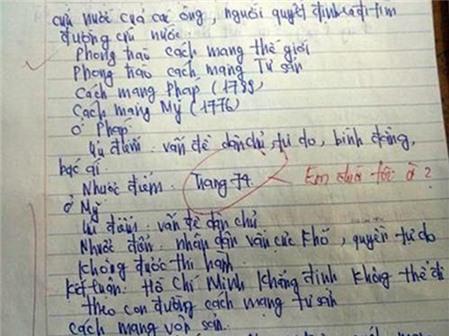 cứu nước của các ông, người quyết định ra đi tìm
đường cứu nước.
Phong trào cách mạng thế giới
Phong trào cách mạng Tư sản
Cách mạng Pháp
Cách mạng Mỹ (1776)
Ở Pháp
Ưu điểm: vấn đề dân chủ, tự do, bình đẳng,
bác ái.
Nhược điểm: Trang 74. Em đuổi tôi à?
Ở Mỹ
Ưu điểm: vấn đề dân chủ
Nhược điểm: nhân dân vẫn cực khổ, quyền tự do
không được thi hành.
Kết luận: Hồ Chí Minh khẳng định không thể đi
theo con đường cách mạng tư sản
Cách mạng vô sản.